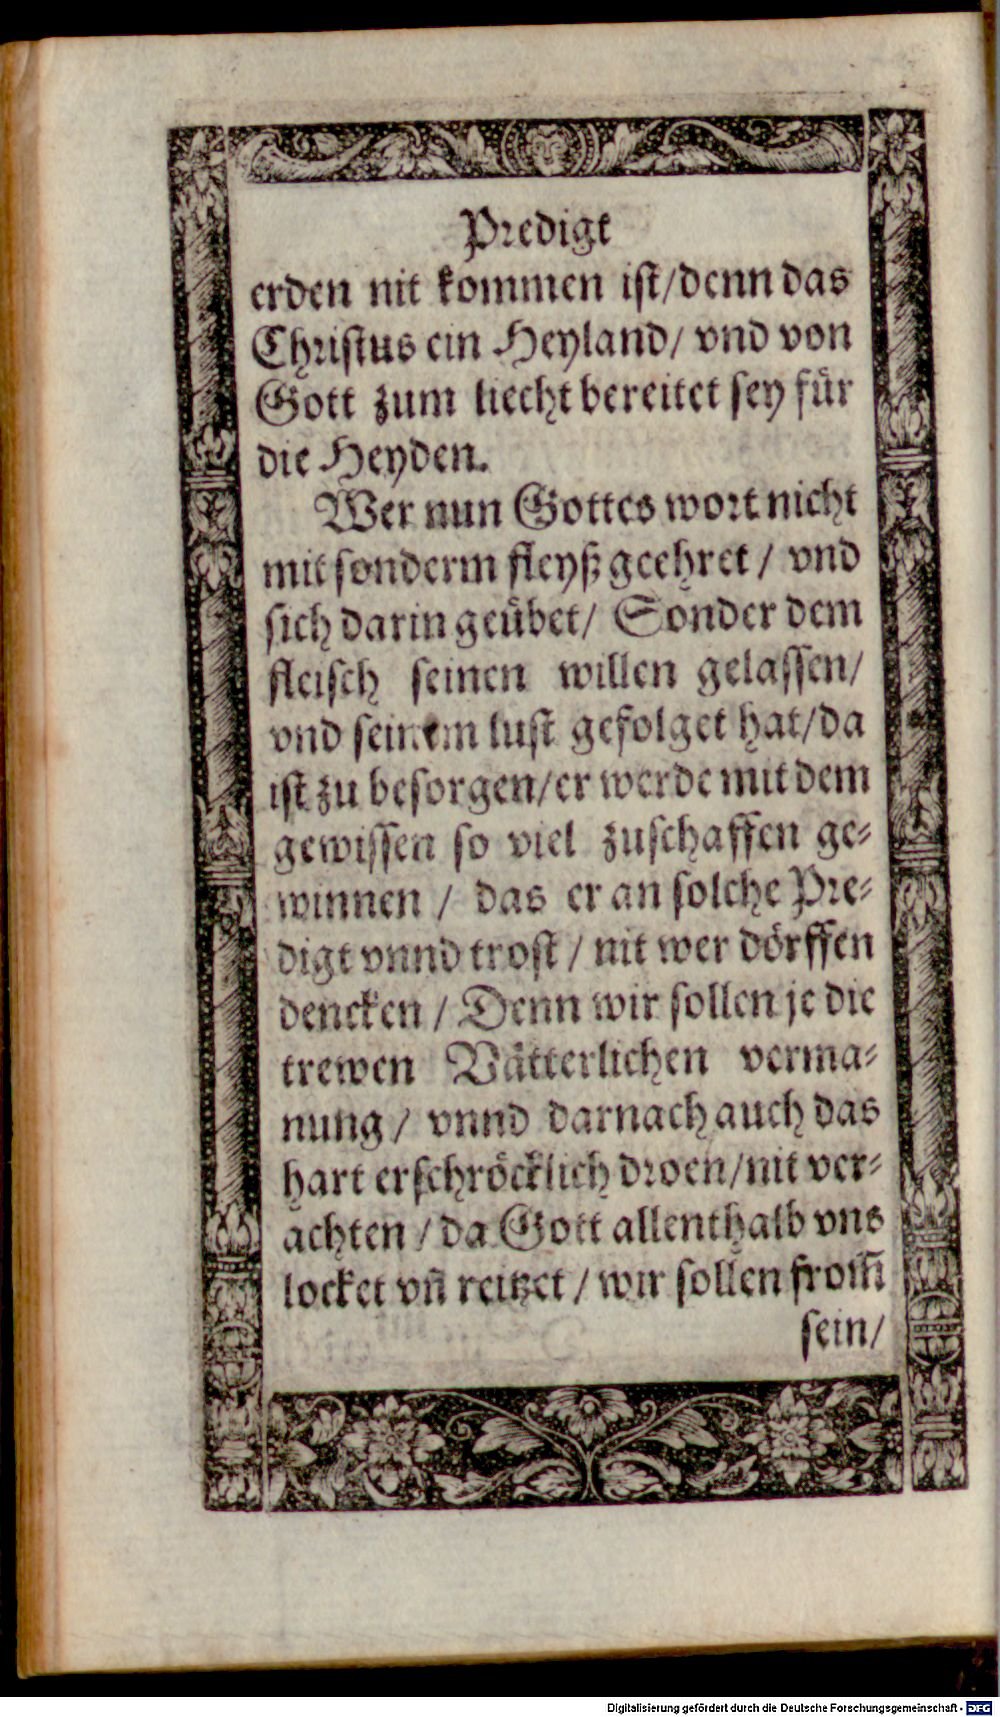 Predigt
erden nit kommen ist/denn das
Christus ein Heyland/ vnd von
Gott zum liecht bereitet sey für
die Heyden.
Wer nun Gottes wort nicht
mit sonderm fleyß geehret / vnd
sich darin geübet/ Sonder dem
fleisch seinen willen gelassen/
vnd seinem lust gefolget hat/da
ist zu besorgen/er werde mit dem
gewissen so viel zuschaffen ge⸗
winnen / das er an solche Pre⸗
digt vnnd trost / nit wer dörffen
dencken / Denn wir sollen je die
trewen Vätterlichen verma⸗
nung / vnnd darnach auch das
hart erschröcklich droen/nit ver⸗
achten / da Gott allenthalb vns
locket vñ reitzet / wir sollen from̃
sein/
Digitalisierung gefördert durch die Deutsche Forschungsgemeinschaft - DFG